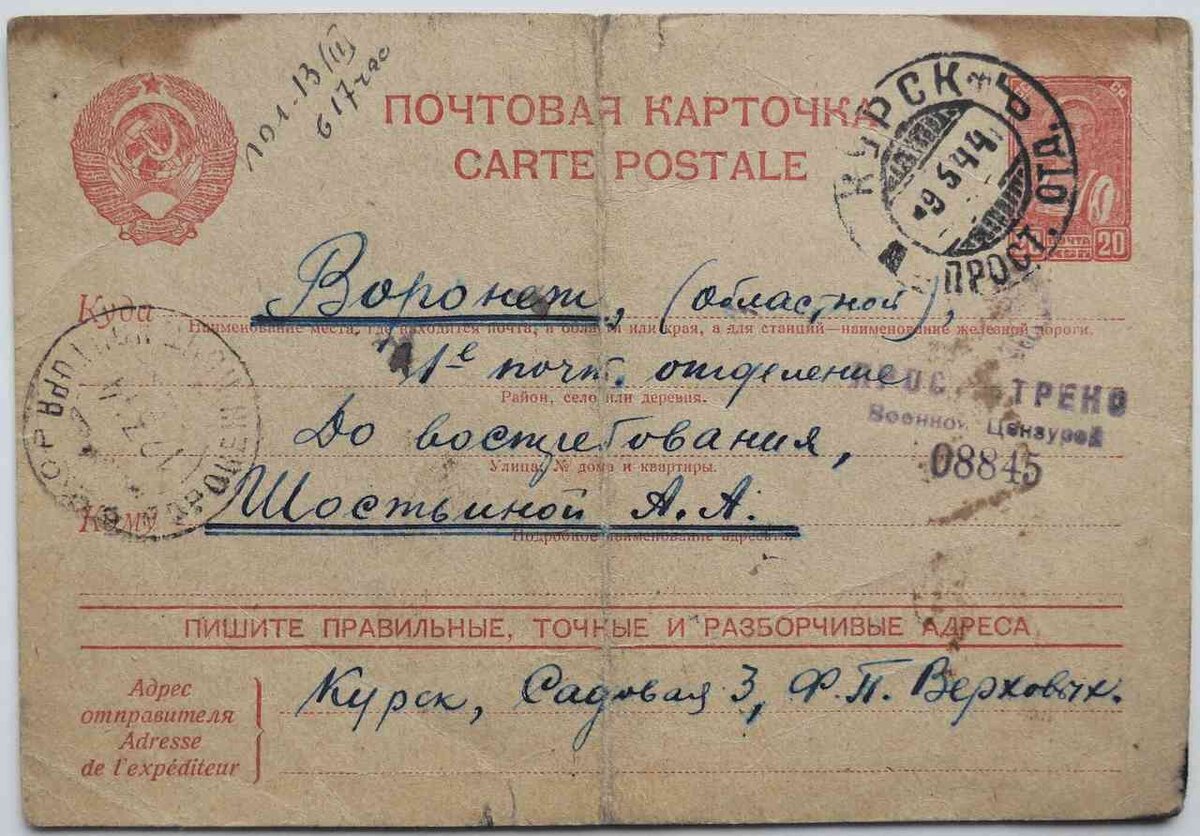 191-13(II)
617420
ПОЧТОВАЯ КАРТОЧКА
CARTE POSTALE
КУРСК
9 5 44
ПРОСТ. ОТД.
ПОЧТА
20
Куда Воронеж, (областной),
Наименование места, где находится почта, и области или края, а для станций—наименование железной дороги.
1е почт. отделение
Район, село или деревня.
До востребования,
Улица, № дома и квартиры.
Кому Шостьиной А.А.
Подробное наименование адресата.
ПРОСМОТРЕНО
Военной Цензурой
08845
ПИШИТЕ ПРАВИЛЬНЫЕ, ТОЧНЫЕ И РАЗБОРЧИВЫЕ АДРЕСА
Адрес отправителя
Adresse de l'expéditeur
Курск, Садовая 3, Ф.П. Верховых.